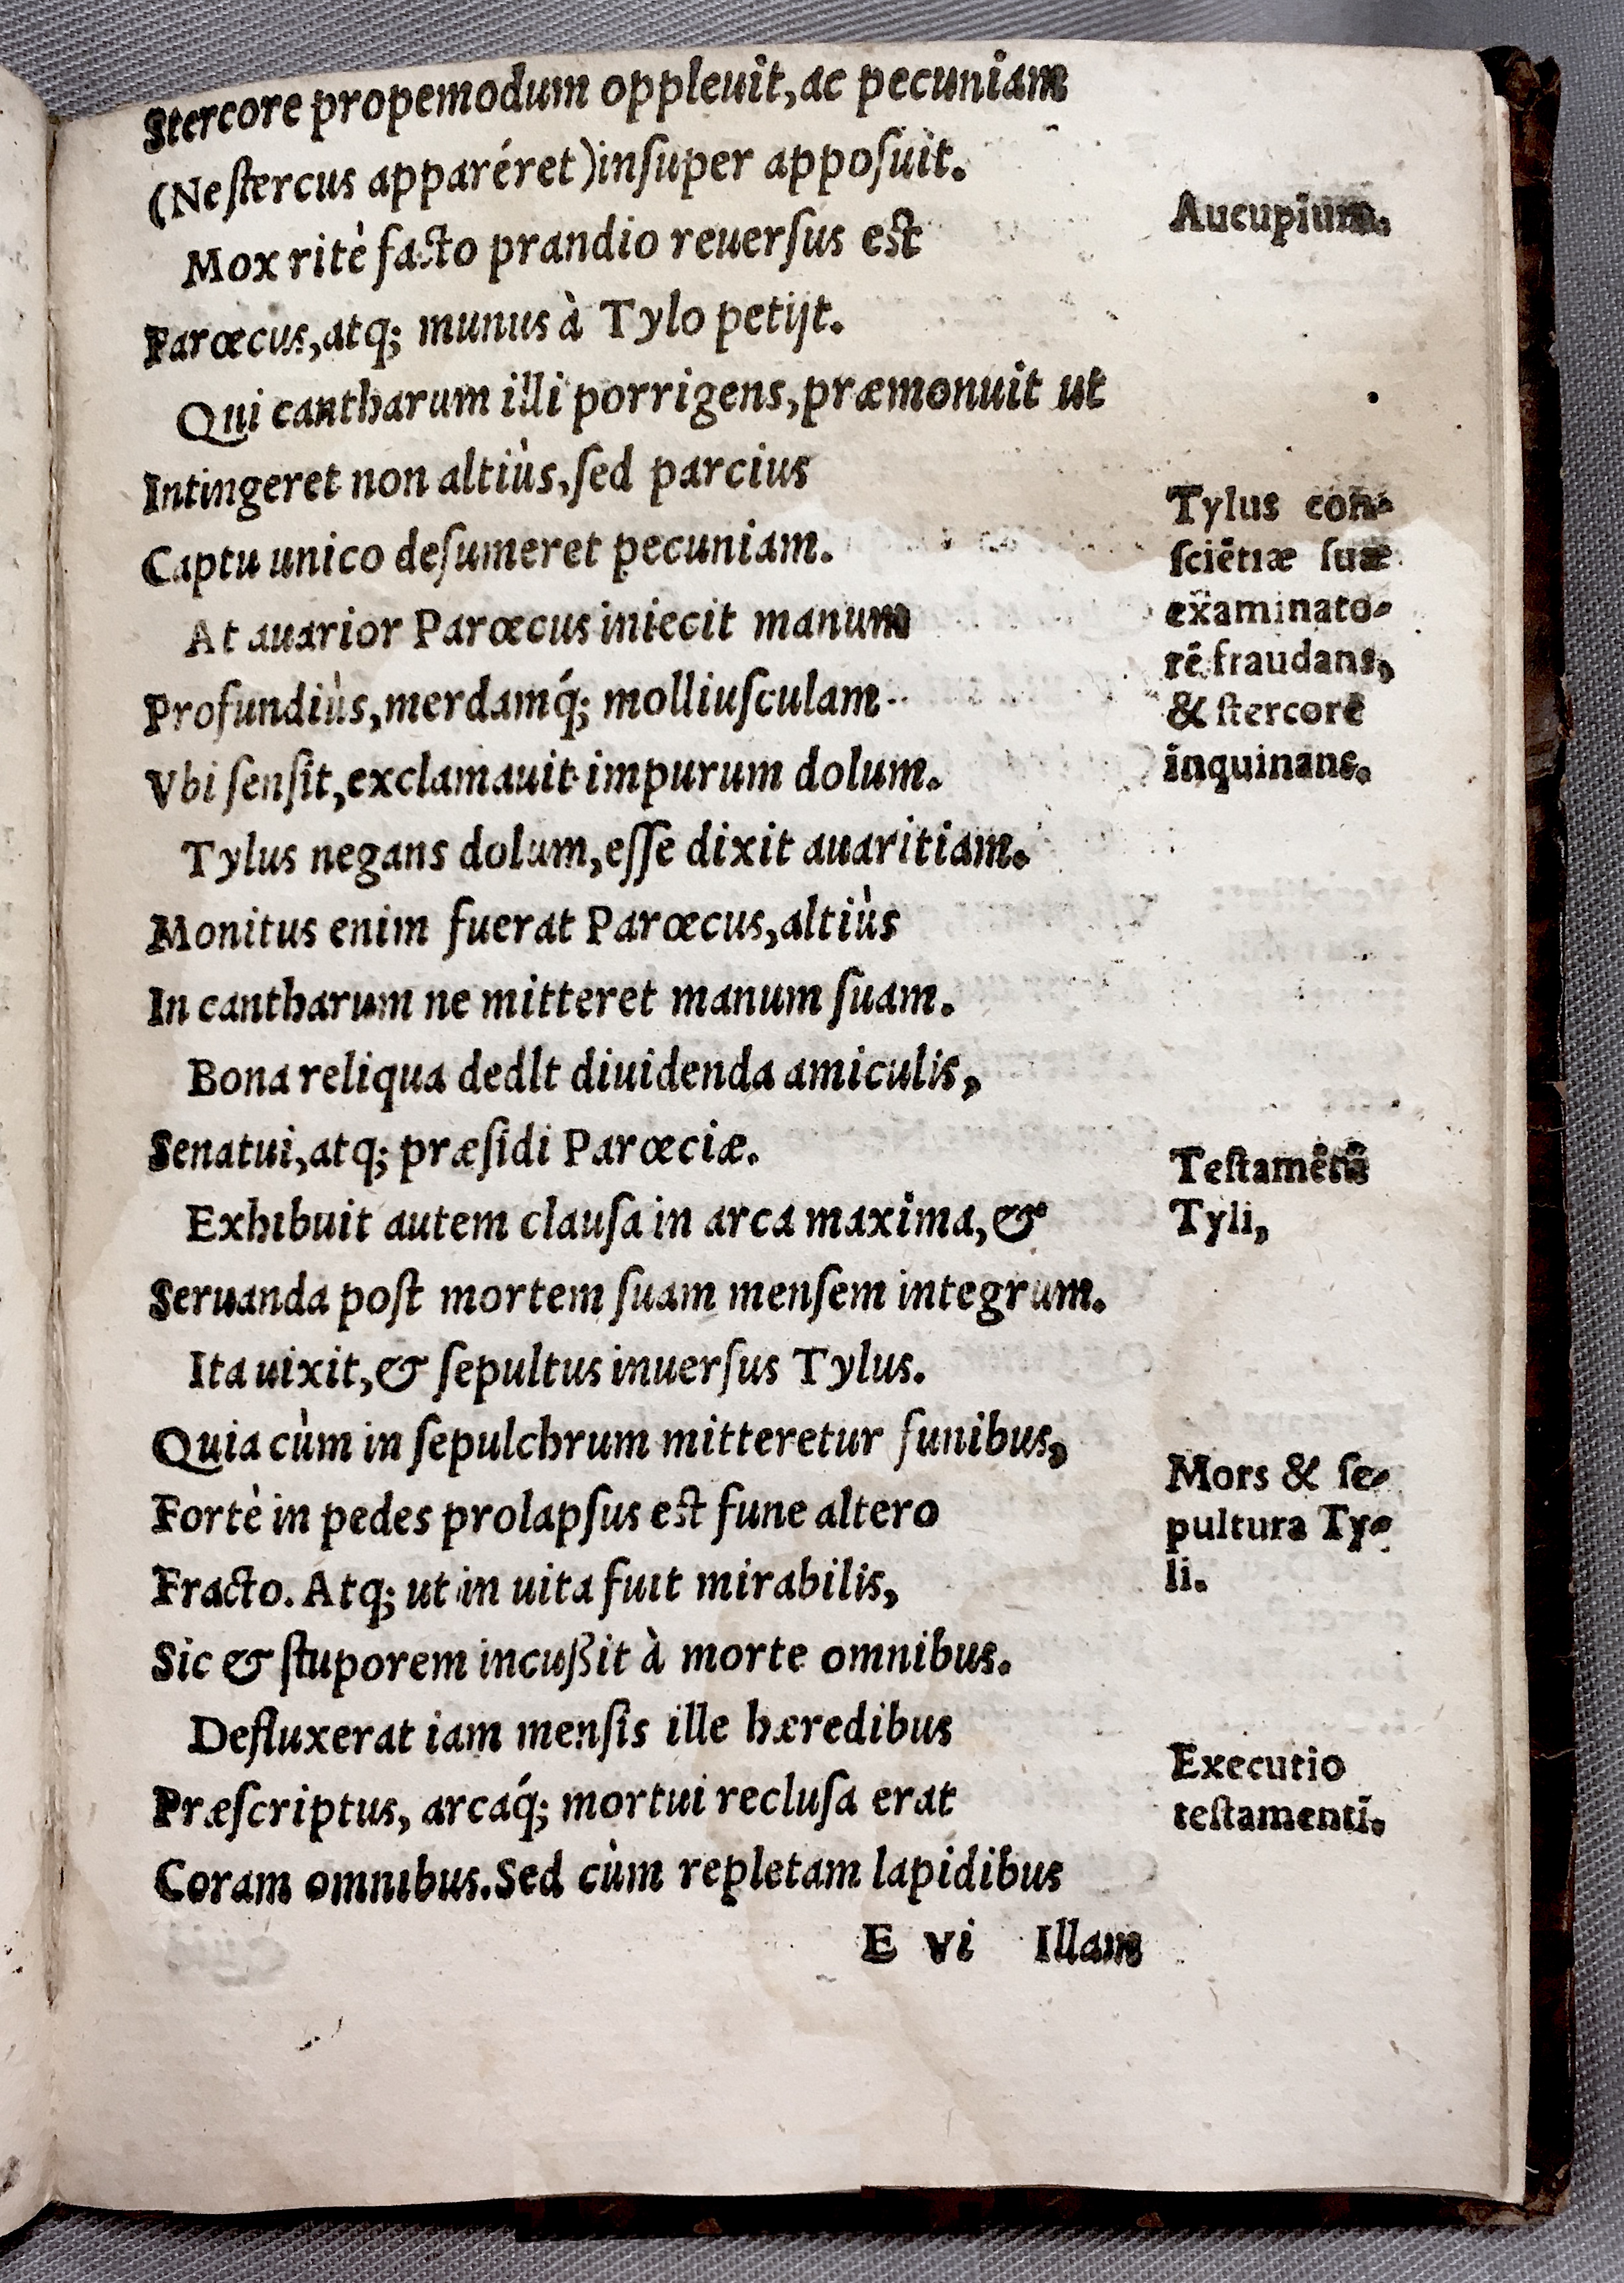 Stercore propemodum oppleuit, ac pecuniam
(Ne ſtercus apparéret) inſuper appoſuit.
Mox ritè facto prandio reuerſus est
Parœcus, atq; munus à Tylo petijt.
Qui cantharum illi porrigens, præmonuit ut
Intingeret non altiùs, ſed parcius
Captu unico deſumeret pecuniam.
At auarior Parœcus iniecit manum
Profundiùs, merdamq́; molliuſculam
Vbi ſenſit, exclamauit impurum dolum.
Tylus negans dolum, eſſe dixit auaritiam.
Monitus enim fuerat Parœcus, altiùs
In cantharum ne mitteret manum ſuam.
Bona reliqua dedlt diuidenda amiculis,
Senatui, atq; præſidi Parœciæ.
Exhibuit autem clauſa in arca maxima, &
Seruanda poſt mortem ſuam menſem integrum.
Ita uixit, & ſepultus inuerſus Tylus.
Quia cùm in ſepulchrum mitteretur funibus,
Fortè in pedes prolapſus est fune altero
Fracto. Atq; ut in uita fuit mirabilis,
Sic & ſtuporem incußit à morte omnibus.
Defluxerat iam menſis ille hæredibus
Præſcriptus, arcaq́; mortui recluſa erat
Coram omnibus. Sed cùm repletam lapidibus
E vi Illam
Aucupium.
Tylus con-
ſciētiæ ſuæ
examinato-
rē fraudans,
& ſtercore
inquinans.
Teſtamētū
Tyli,
Mors & ſe-
pultura Ty-
li.
Executio
teſtamenti.